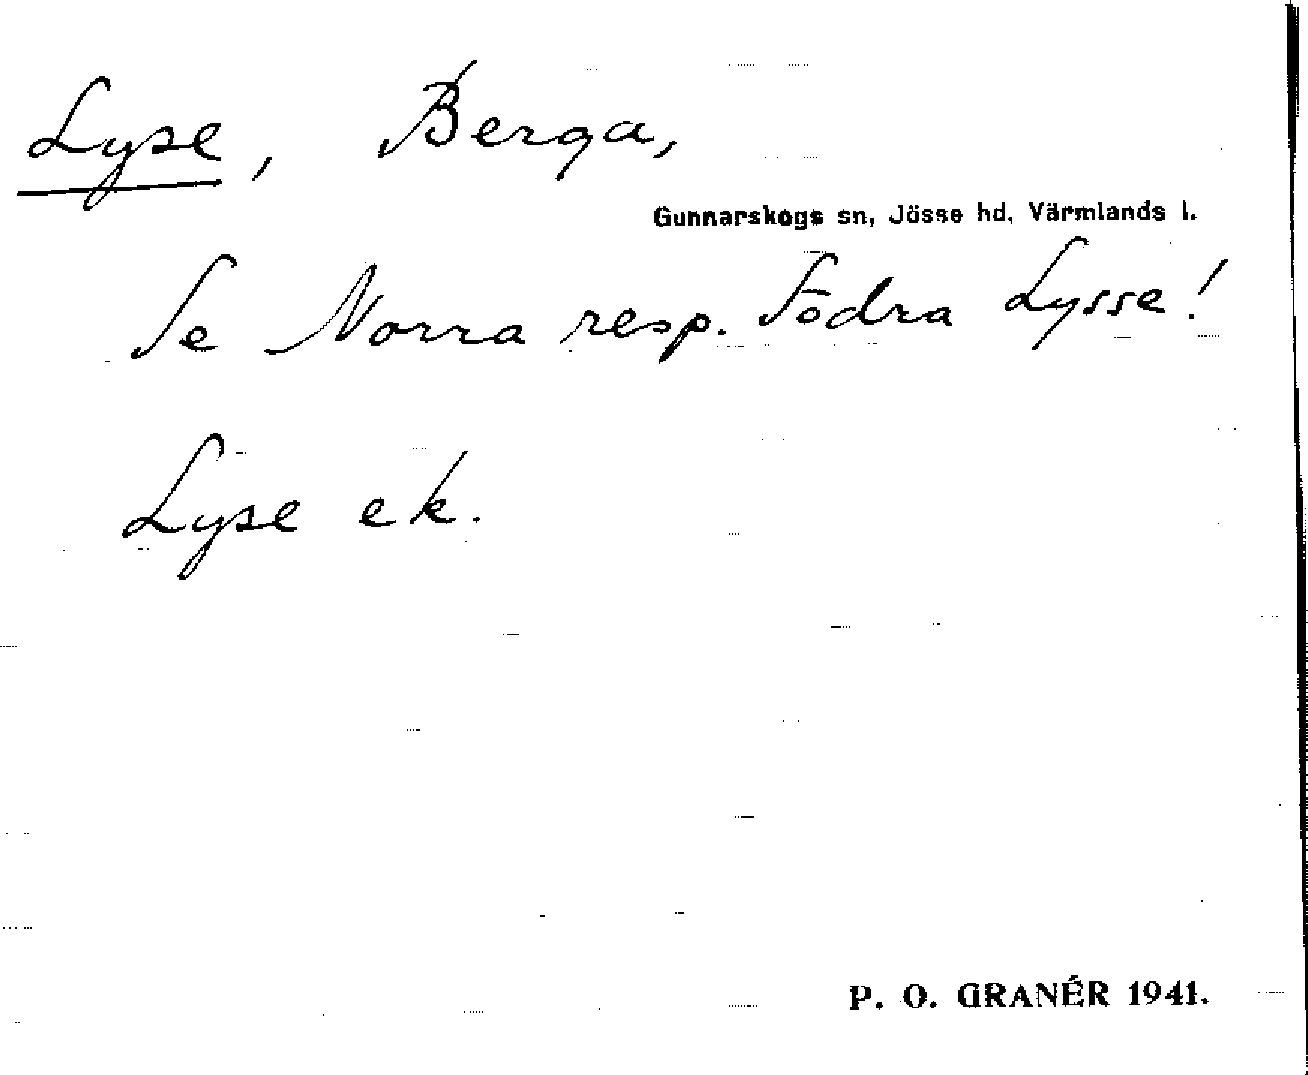 Lyse, Berga,
Gunnarskogs sn, Jösse hd, Värmlands l.
Se Norra resp. Södra Lysse!
Lyse ek.
P. O. GRANÉR 1941.